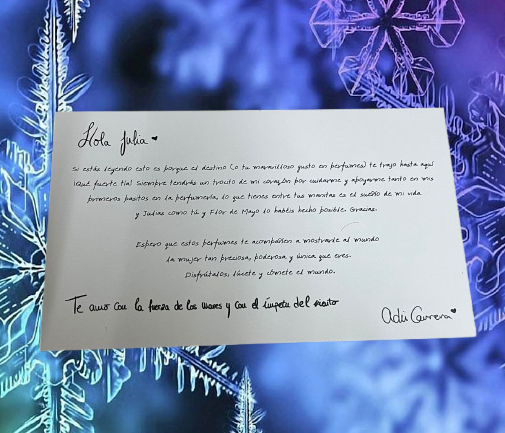 Hola Julia
Si estás leyendo esto es porque el destino (o tu maravilloso gusto en perfumes) te trajo hasta aquí
¡Qué fuerte tía! Siempre tendrás un trocito de mi corazón por cuidarme y apoyarme tanto en mis
primeros pasitos en la perfumería, lo que tienes entre tus manitas es el sueño de mi vida
y Julias como tú y Flor de Mayo lo habéis hecho posible. Gracias.
Espero que estos perfumes te acompañen a mostrarle al mundo
la mujer tan preciosa, poderosa y única que eres.
Disfrútalos, lúcete y cómete el mundo.
Te amo con la fuerza de los mares y con el ímpetu del viento
Adú Carrera